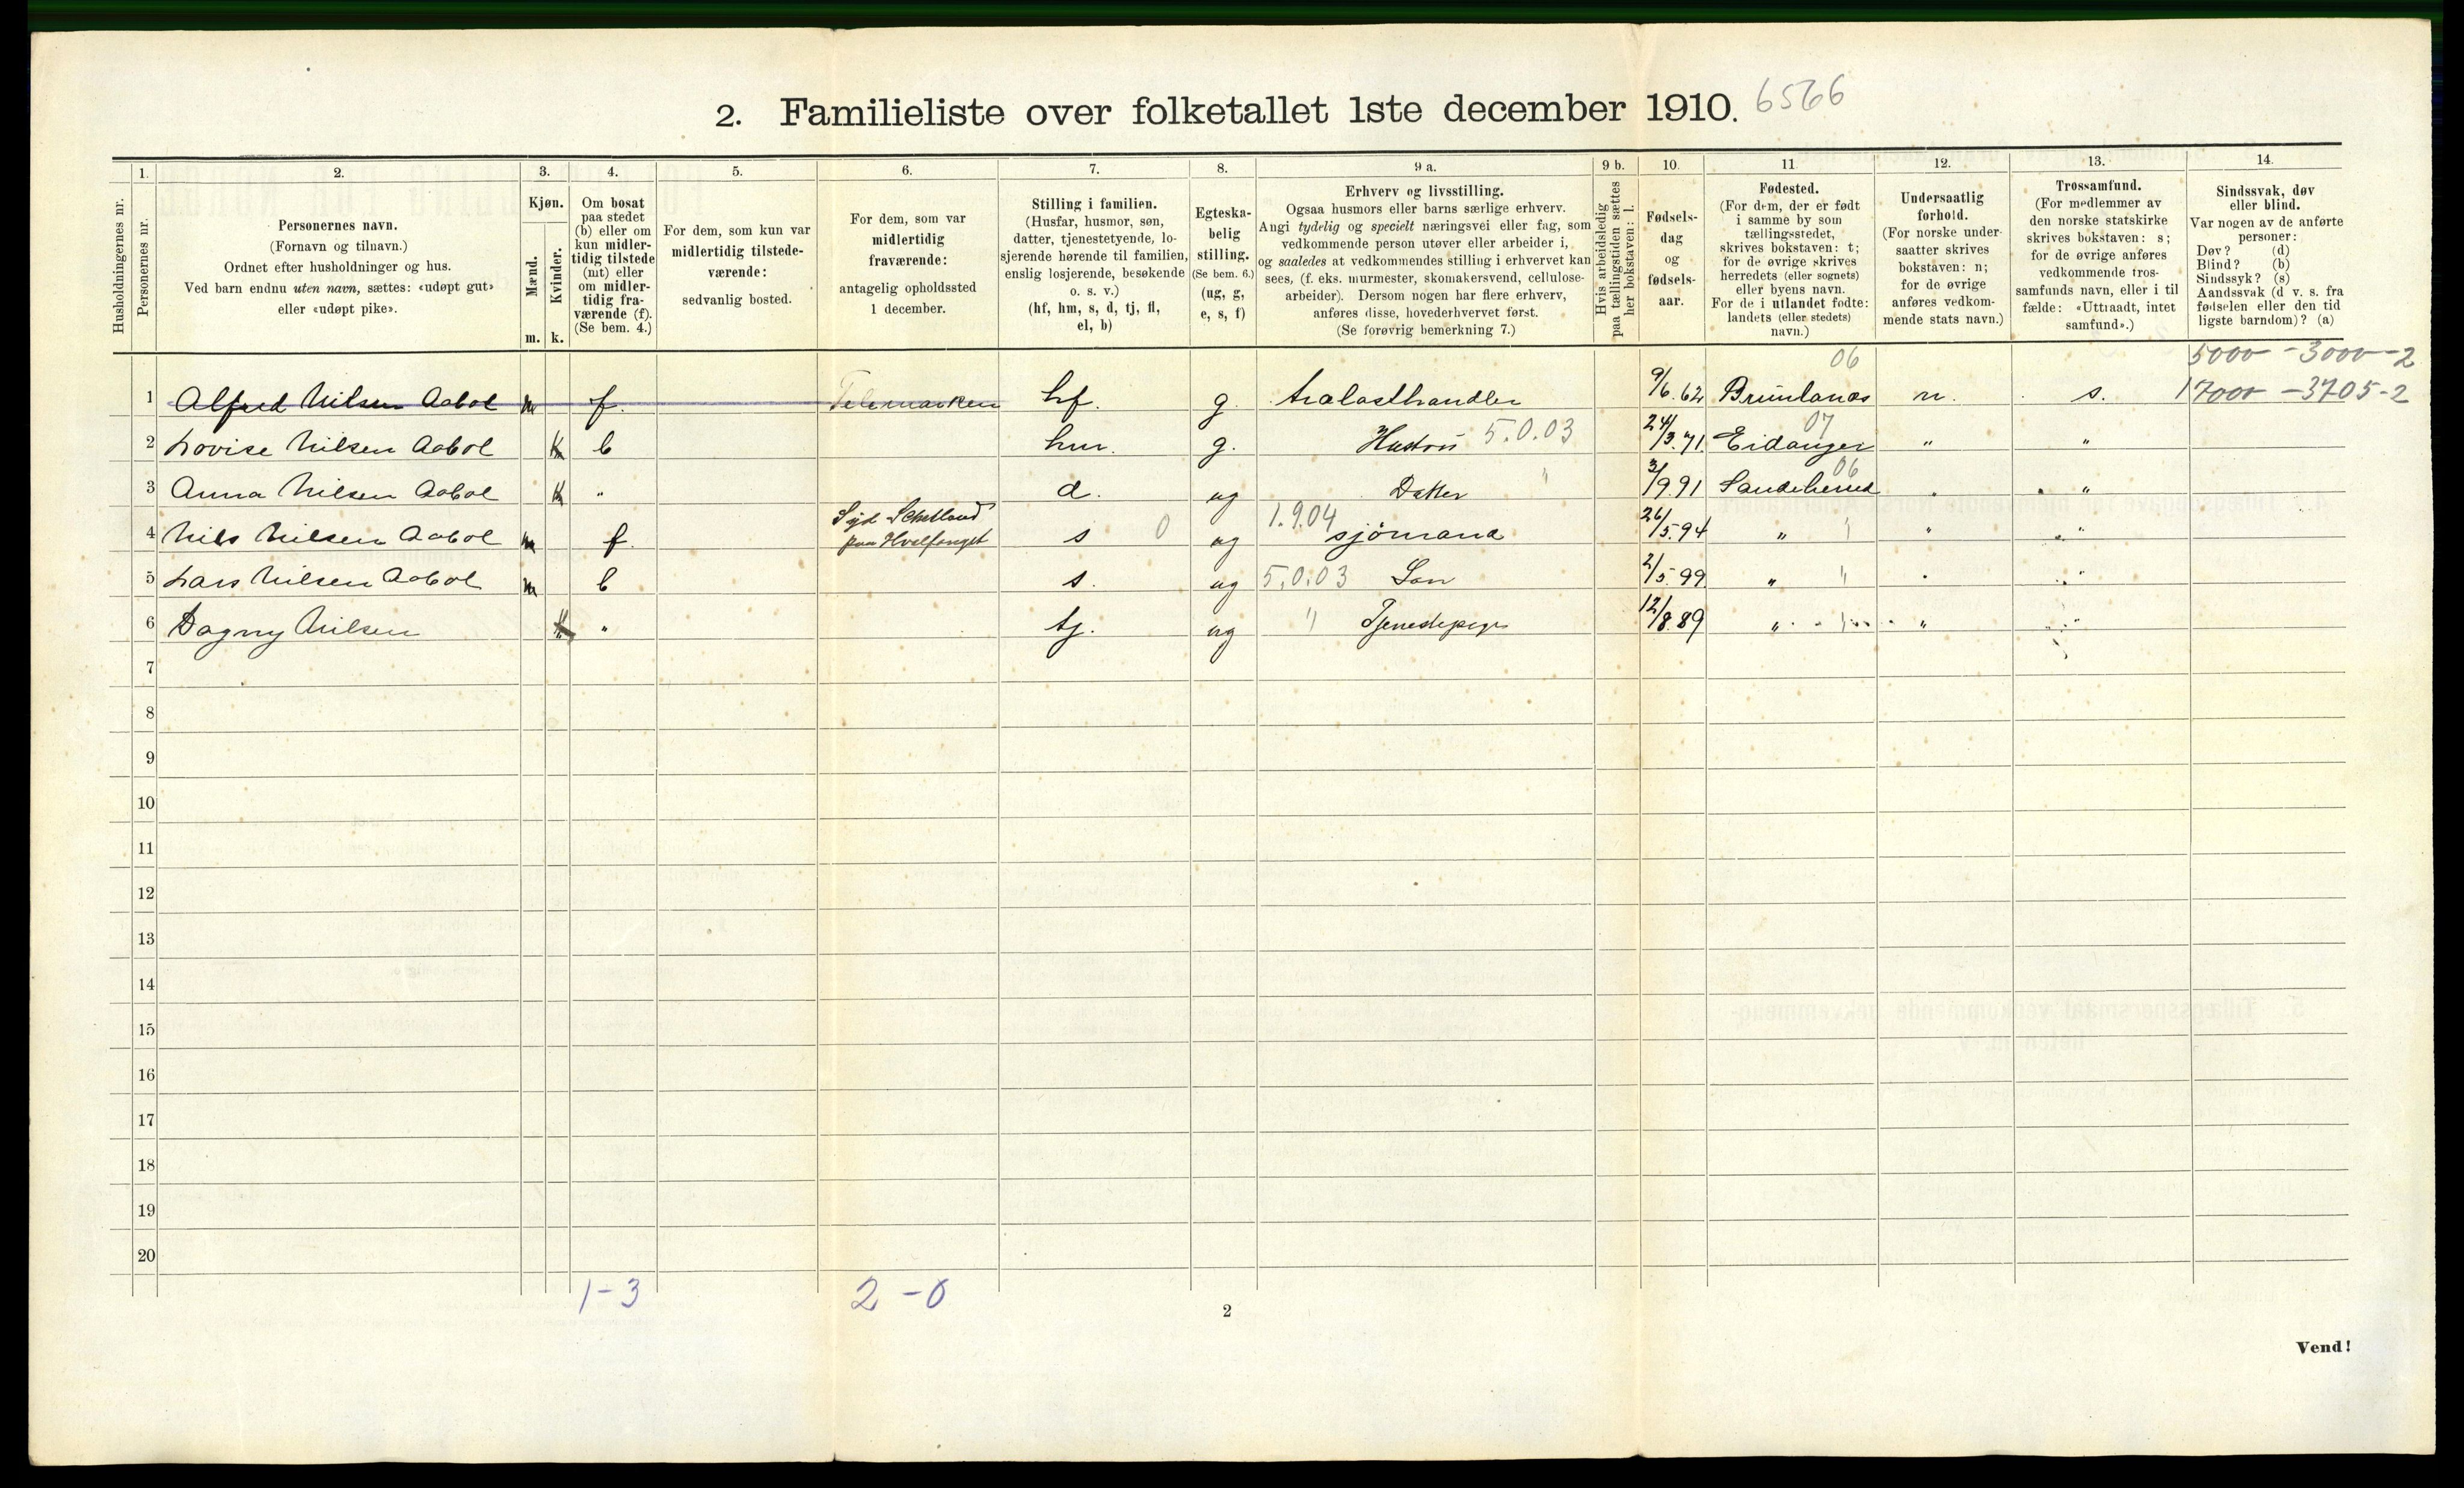 2. Familieliste over folketallet 1ste december 1910. 6566
Husholdningernes nr.
1. Personernes nr.
2. Personernes navn.
(Fornavn og tilnavn.)
Ordnet efter husholdninger og hus.
Ved barn endnu uten navn, sættes: «udøpt gut»
eller «udøpt pike».
3. Kjøn.
Mænd. m.
Kvinder. k.
4. Om bosat
paa stedet
(b) eller om
kun midler-
tidig tilstede
(mt) eller
om midler-
tidig fra-
værende (f).
(Se bem. 4.)
5. For dem, som kun var
midlertidig tilstede-
værende:
sedvanlig bosted.
6. For dem, som var
midlertidig
fraværende:
antagelig opholdssted
1 december.
7. Stilling i familien.
(Husfar, husmor, søn,
datter, tjenestetyende, lo-
sjerende hørende til familien,
enslig losjerende, besøkende
o. s. v.)
(hf, hm, s, d, tj, fl,
el, b)
8. Egteska-
belig
stilling.
(Se bem. 6.)
(ug, g,
e, s, f)
9 a. Erhverv og livsstilling.
Ogsaa husmors eller barns særlige erhverv.
Angi tydelig og specielt næringsvei eller fag, som
vedkommende person utøver eller arbeider i,
og saaledes at vedkommendes stilling i erhvervet kan
sees, (f. eks. murmester, skomakersvend, cellulose-
arbeider). Dersom nogen har flere erhverv,
anføres disse, hovederhvervet først.
(Se forøvrig bemerkning 7.)
9 b. Hvis arbeidsledig
paa tællingstiden sættes
her bokstaven: l.
10. Fødsels-
dag
og
fødsels-
aar.
11. Fødested.
(For dem, der er født
i samme by som
tællingsstedet,
skrives bokstaven: t;
for de øvrige skrives
herredets (eller sognets)
eller byens navn.
For de i utlandet fødte:
landets (eller stedets)
navn.)
12. Undersaatlig
forhold.
(For norske under-
saatter skrives
bokstaven: n;
for de øvrige
anføres vedkom-
mende stats navn.)
13. Trossamfund.
(For medlemmer av
den norske statskirke
skrives bokstaven: s;
for de øvrige anføres
vedkommende tros-
samfunds navn, eller i til
fælde: «Uttraadt, intet
samfund».)
14. Sindssvak, døv
eller blind.
Var nogen av de anførte
personer:
Døv? (d)
Blind? (b)
Sindssyk? (s)
Aandssvak (d v. s. fra
fødselen eller den tid
ligste barndom)? (a)
06 5000 - 3000 - 2
1 Alfred Nilsen Aabol m f. Telemarken hf. g. Trælasthandler 9/6.62 Brunlanæs n. s. 17000 - 3705 - 2
2 Lovise Nilsen Aabol k b hm. g. Hustru 5.0.03 24/3.71. 07 Eidanger " "
3 Anna Nilsen Aabol k " d. ug Datter " 3/9.91 06 Sandeherred " "
4 Nils Nilsen Aabol m f. Syd Schetland
paa Hvalfanget s 0 ug 1.9.04 sjömand 26/5.94 " " " "
5 Lars Nilsen Aabol m b s. ug 5.0.03 Søn 2/5.99 " " " "
6 Dagny Nilsen k " tj. ug " Tjenestepige 12/8.89 " " " "
7
8
9
10
11
12
13
14
15
16
17
18
19
20
1-3 2-0
2
Vend!